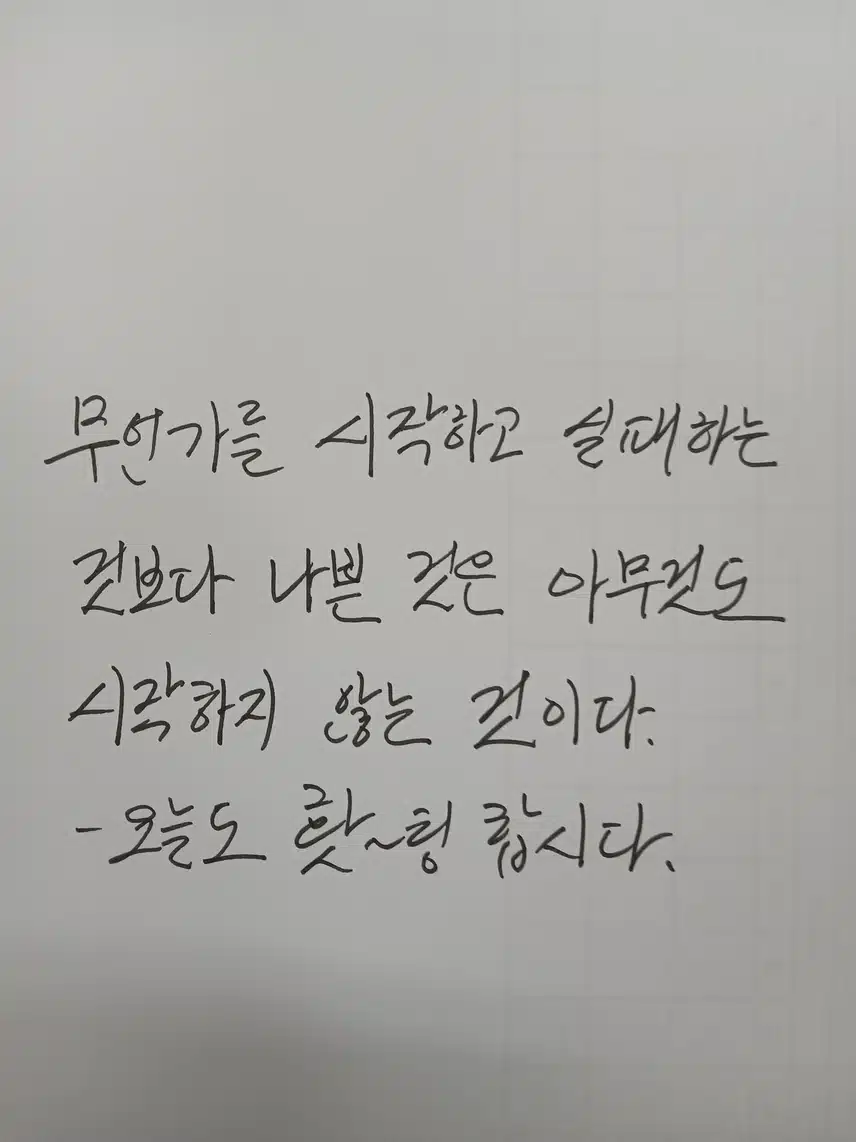 무언가를 시작하고 실패하는
것보다 나쁜 것은 아무것도
시작하지 않는 것이다.
-오늘도 홧~팅 합시다.